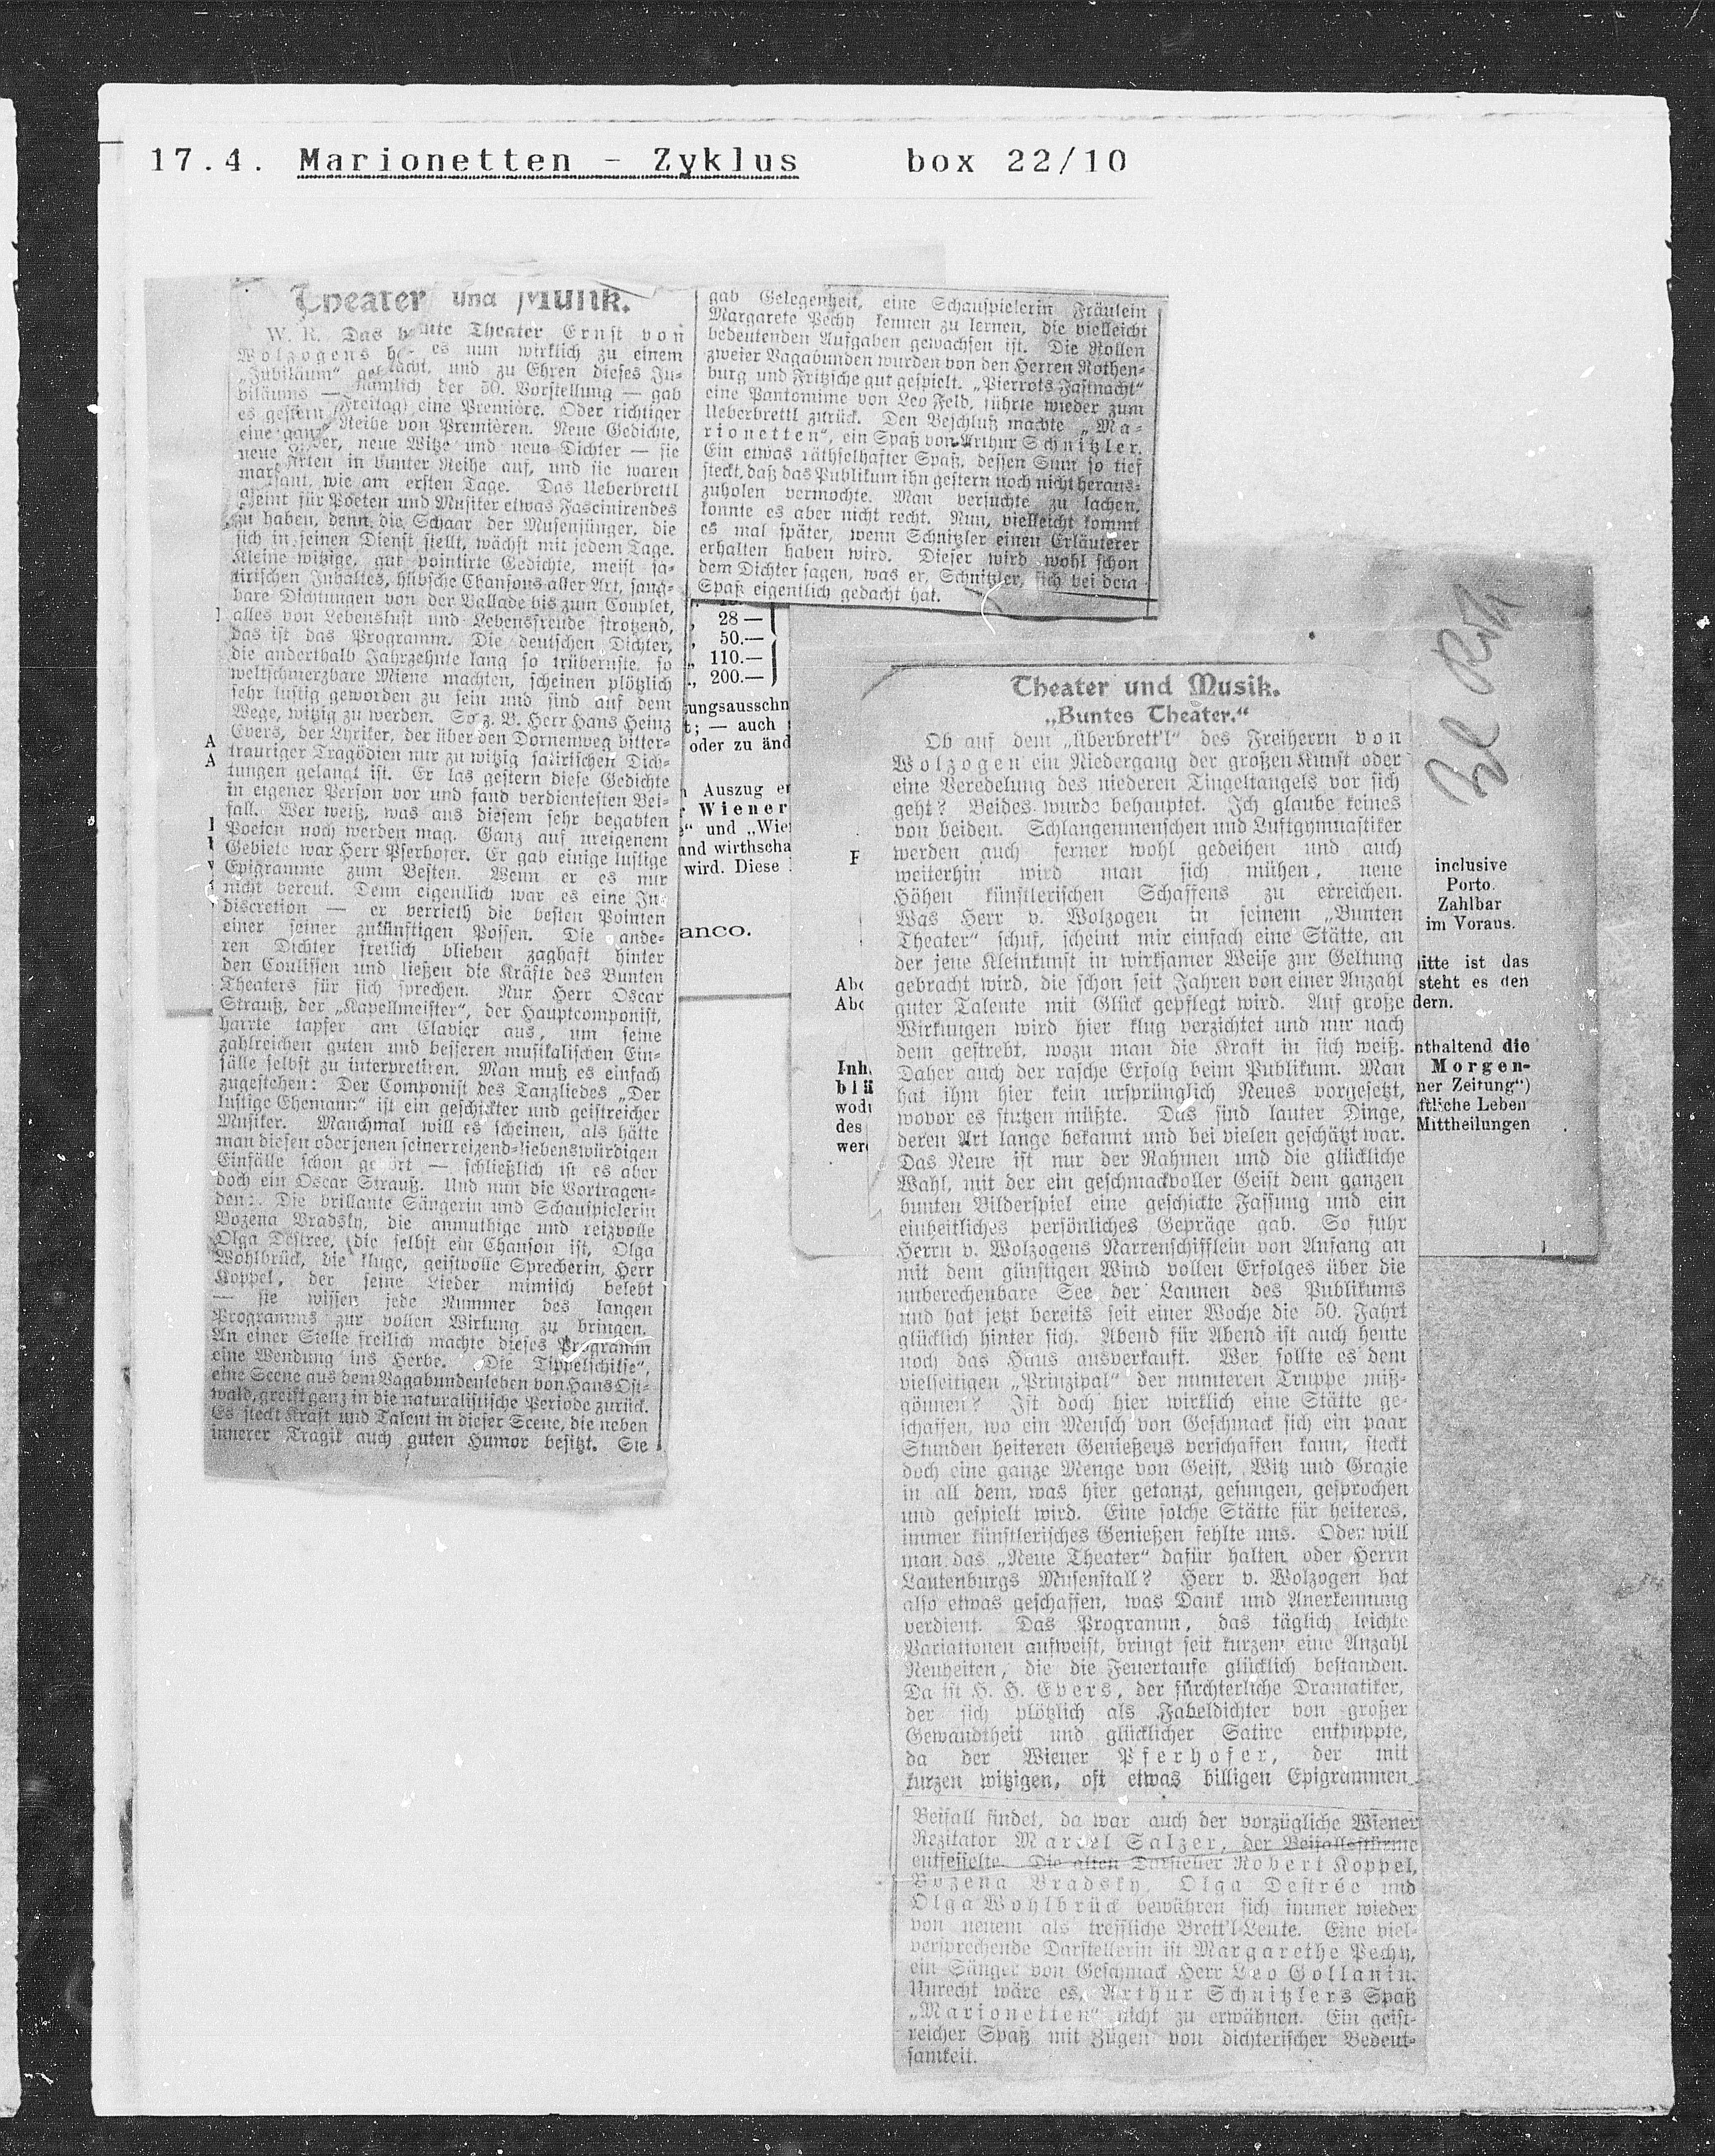 17.4. Marionetten - Zyklus box 22/10
Theater und Musik.
W. R. Das bunte Theater Ernst von
Wolzogens h es nun wirklich zu einem
„Jubiläum“ gebracht, und zu Ehren dieses Ju-
biläums — nämlich der 50. Vorstellung — gab
es gestern (Freitag) eine Première. Oder richtiger
eine ganze Reihe von Premièren. Neue Gedichte,
neue Lieder, neue Witze und neue Dichter — sie
marschirten in bunter Reihe auf, und sie waren
amusant, wie am ersten Tage. Das Ueberbrettl
scheint für Poeten und Musiker etwas Fascinirendes
zu haben, denn die Schaar der Musenjünger, die
sich in seinen Dienst stellt, wächst mit jedem Tage.
Kleine witzige, gut pointirte Gedichte, meist sa-
tirischen Inhaltes, hübsche Chansons aller Art, sang-
bare Dichtungen von der Ballade bis zum Couplet,
alles von Lebenslust und Lebensfreude strotzend,
das ist das Programm. Die deutschen Dichter,
die anderthalb Jahrzehnte lang so trübernste, so
weltschmerzbare Miene machten, scheinen plötzlich
sehr lustig geworden zu sein und sind auf dem
Wege, witzig zu werden. So z. B. Herr Hans Heinz
Evers, der Lyriker, der über den Dornenweg bitter-
trauriger Tragödien nur zu witzig satirischen Dich-
tungen gelangt ist. Er las gestern diese Gedichte
in eigener Person vor und fand verdientesten Bei-
fall. Wer weiß, was aus diesem sehr begabten
Poeten noch werden mag. Ganz auf ureigenem
Gebiete war Herr Pserhofer. Er gab einige lustige
Epigramme zum Besten. Wenn er es nur
nicht bereut. Denn eigentlich war es eine In-
discretion — er verrieth die besten Pointen
einer seiner zukünftigen Possen. Die ande-
ren Dichter freilich blieben zaghaft hinter
den Coulissen und ließen die Kräfte des Bunten
Theaters für sich sprechen. Nur Herr Oscar
Strauß, der „Kapellmeister“, der Hauptcomponist,
harrte tapfer am Clavier aus, um seine
zahlreichen guten und besseren musikalischen Ein-
fälle selbst zu interpretiren. Man muß es einfach
zugestehen: Der Componist des Tanzliedes „Der
lustige Ehemann“ ist ein geschickter und geistreicher
Musiker. Manchmal will es scheinen, als hätte
man diesen oder jenen seiner reizend-liebenswürdigen
Einfälle schon gehört — schließlich ist es aber
doch ein Oscar Strauß. Und nun die Vortragen-
den: Die brillante Sängerin und Schauspielerin
Bozena Bradsky, die anmuthige und reizvolle
Olga Destree, die selbst ein Chanson ist, Olga
Wohlbrück, die kluge, geistvolle Sprecherin, Herr
Koppel, der seine Lieder mimisch belebt
— sie wissen jede Nummer des langen
Programms zur vollen Wirkung zu bringen.
An einer Stelle freilich machte dieses Programm
eine Wendung ins Herbe. „Die Tippelschikse“,
eine Scene aus dem Vagabundenleben von Hans Ost-
wald, greift ganz in die naturalistische Periode zurück.
Es steckt Kraft und Talent in dieser Scene, die neben
innerer Tragik auch guten Humor besitzt. Sie
gab Gelegenheit, eine Schauspielerin Fräulein
Margarete Pechy kennen zu lernen, die vielleicht
bedeutenden Aufgaben gewachsen ist. Die Rollen
zweier Vagabunden wurden von den Herren Rothen-
burg und Fritzsche gut gespielt. „Pierrots Fastnacht“
eine Pantomime von Leo Feld, führte wieder zum
Ueberbrettl zurück. Den Beschluß machte „Ma-
rionetten“, ein Spaß von Arthur Schnitzler.
Ein etwas räthselhafter Spaß, dessen Sinn so tief
steckt, daß das Publikum ihn gestern noch nicht heraus-
zuholen vermochte. Man versuchte zu lachen,
konnte es aber nicht recht. Nun, vielleicht kommt
es mal später, wenn Schnitzler einen Erläuterer
erhalten haben wird. Dieser wird wohl schon
dem Dichter sagen, was er, Schnitzler, sich bei dem
Spaß eigentlich gedacht hat.
„ 28 —
„ 50.—
„ 110.—
„ 200.—
ungsausschn
t; — auch
oder zu änd
A
A
Auszug e
Wiener
“ und „Wie
and wirthscha
wird. Diese
anco.
Theater und Musik.
„Buntes Theater.“
Ob auf dem „Überbrett'l“ des Freiherrn von
Wolzogen ein Niedergang der großen Kunst oder
eine Veredelung des niederen Tingeltangels vor sich
geht? Beides wurde behauptet. Ich glaube keines
von beiden. Schlangenmenschen und Luftgymnastiker
werden auch ferner wohl gedeihen und auch
weiterhin wird man sich mühen, neue
Höhen künstlerischen Schaffens zu erreichen.
Was Herr v. Wolzogen in seinem „Bunten
Theater“ schuf, scheint mir einfach eine Stätte, an
der jene Kleinkunst in wirksamer Weise zur Geltung
gebracht wird, die schon seit Jahren von einer Anzahl
guter Talente mit Glück gepflegt wird. Auf große
Wirkungen wird hier klug verzichtet und nur nach
dem gestrebt, wozu man die Kraft in sich weiß.
Daher auch der rasche Erfolg beim Publikum. Man
hat ihm hier kein ursprünglich Neues vorgesetzt,
wovor es stutzen müßte. Das sind lauter Dinge,
deren Art lange bekannt und bei vielen geschätzt war.
Das Neue ist nur der Rahmen und die glückliche
Wahl, mit der ein geschmackvoller Geist dem ganzen
bunten Bilderspiel eine geschickte Fassung und ein
einheitliches persönliches Gepräge gab. So fuhr
Herrn v. Wolzogens Narrenschifflein von Anfang an
mit dem günstigen Wind vollen Erfolges über die
unberechenbare See der Launen des Publikums
und hat jetzt bereits seit einer Woche die 50. Fahrt
glücklich hinter sich. Abend für Abend ist auch heute
noch das Haus ausverkauft. Wer sollte es dem
vielseitigen „Prinzipal“ der munteren Truppe miß-
gönnen? Ist doch hier wirklich eine Stätte ge-
schaffen, wo ein Mensch von Geschmack sich ein paar
Stunden heiteren Genießens verschaffen kann, steckt
doch eine ganze Menge von Geist, Witz und Grazie
in all dem, was hier getanzt, gesungen, gesprochen
und gespielt wird. Eine solche Stätte für heiteres,
immer künstlerisches Genießen fehlte uns. Oder will
man das „Neue Theater“ dafür halten oder Herrn
Lautenburgs Musenstall? Herr v. Wolzogen hat
also etwas geschaffen, was Dank und Anerkennung
verdient. Das Programm, das täglich leichte
Variationen aufweist, bringt seit kurzem eine Anzahl
Neuheiten, die die Feuertaufe glücklich bestanden.
Da ist H. H. Evers, der fürchterliche Dramatiker,
der sich plötzlich als Fabeldichter von großer
Gewandtheit und glücklicher Satire entpuppte,
da der Wiener Pserhofer, der mit
kurzen witzigen, oft etwas billigen Epigrammen
Beifall findet, da war auch der vorzügliche Wiener
Rezitator Marcel Salzer, der Beifallsstürme
entfesselte. Die alten Darsteller Robert Koppel,
Bozena Bradsky, Olga Destrée und
Olga Wohlbrück bewähren sich immer wieder
von neuem als treffliche Brett'l-Leute. Eine viel-
versprechende Darstellerin ist Margarethe Pechy,
ein Sänger von Geschmack Herr Leo Gollanin.
Unrecht wäre es, Arthur Schnitzlers Spaß
„Marionetten“ nicht zu erwähnen. Ein geist-
reicher Spaß mit Zügen von dichterischer Bedeut-
samkeit.
F
Abo
Abo
Inh
blä
wodu
des
were
inclusive
Porto.
Zahlbar
im Voraus.
itte ist das
steht es den
dern.
nthaltend die
Morgen-
ner Zeitung“)
ftliche Leben
Mittheilungen